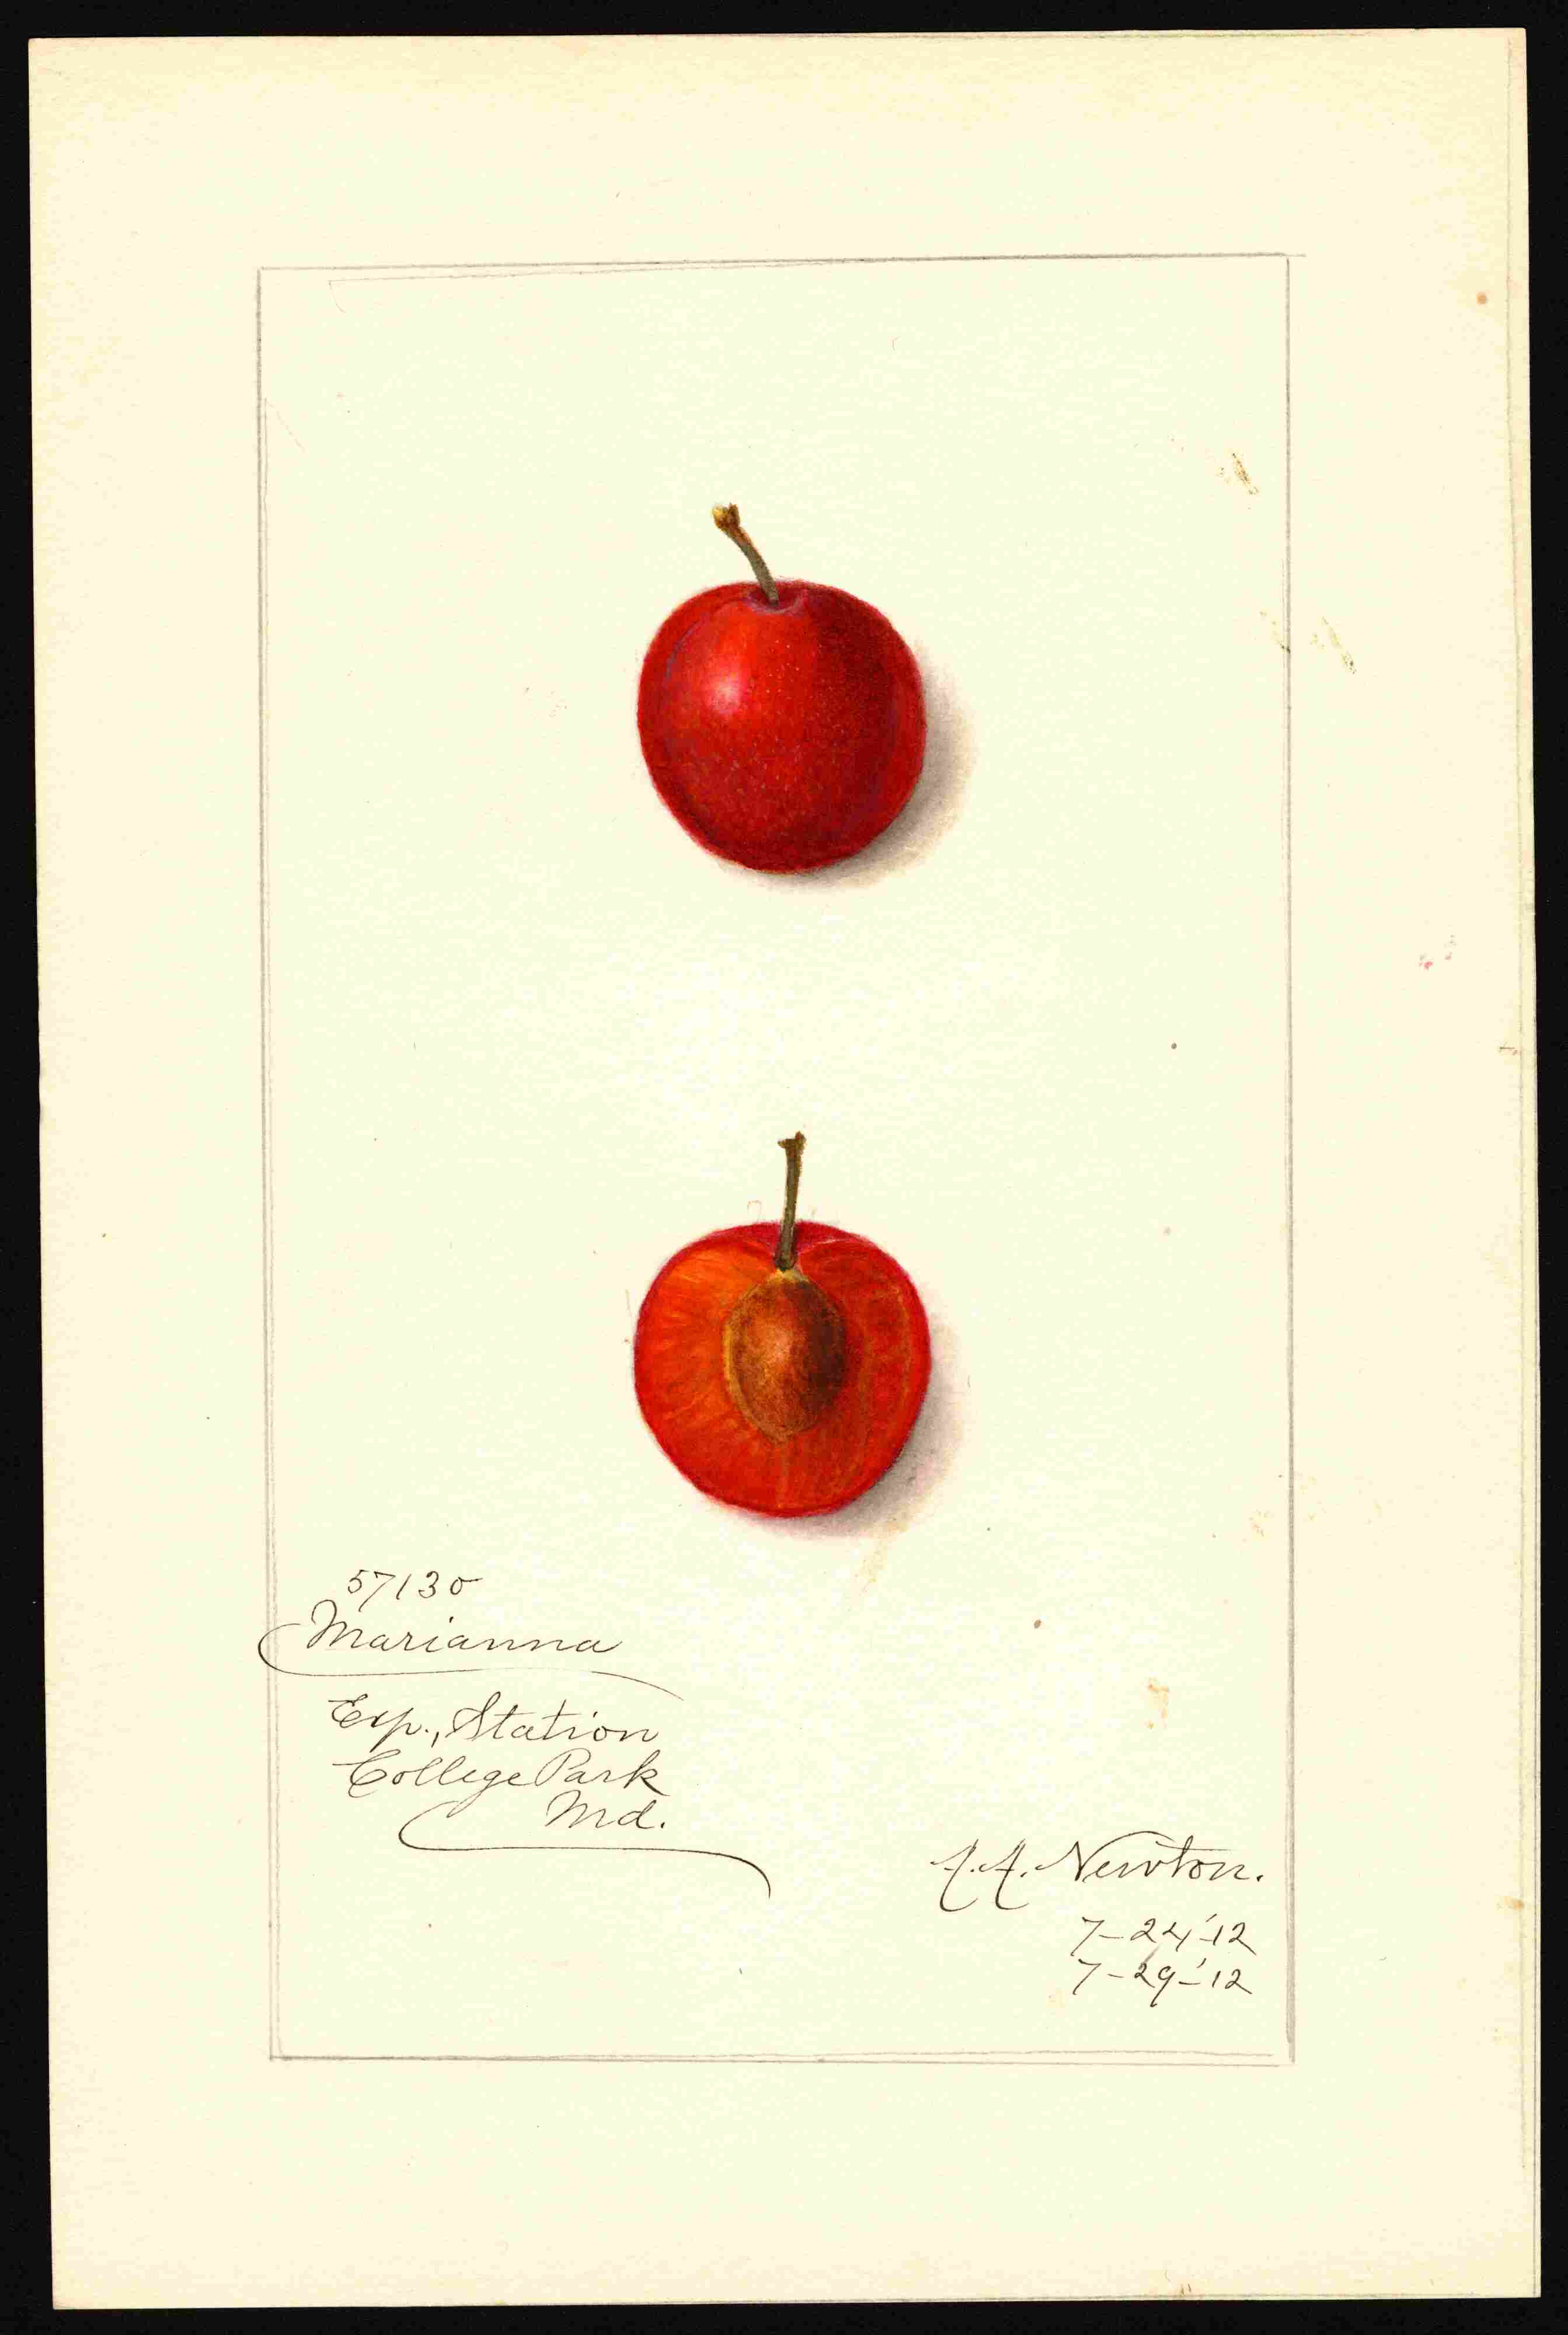 57130
Marianna
Exp., Station
College Park
Md.
A.A. Newton.
7-24-'12
7-29-'12